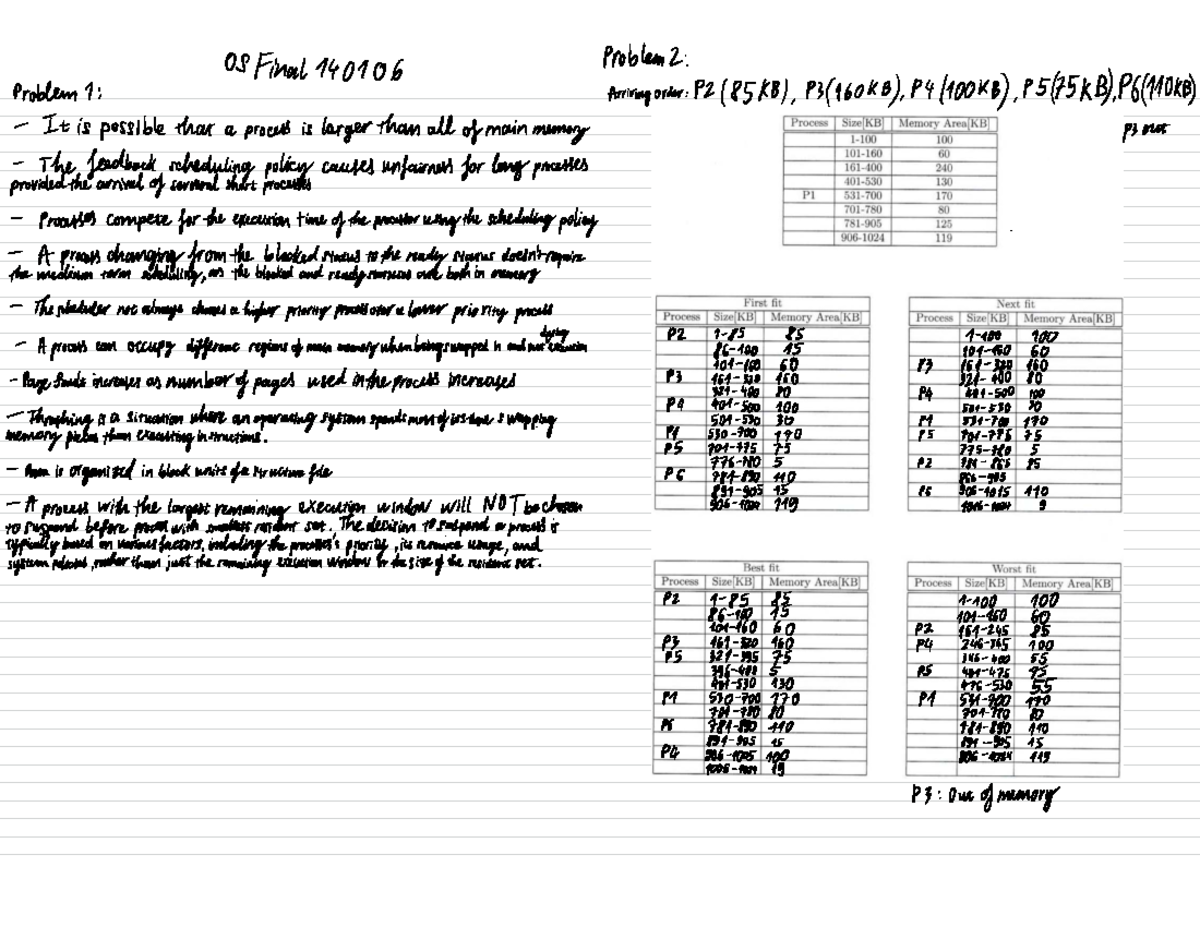 OS Final 140106
Problem 1:
- It is possible that a process is larger than all of main memory
- The feedback scheduling policy causes unfairness for long processes
provided the arrival of several short processes
- Processes compete for the execution time of the processor using the scheduling policy
- A process changing from the blocked status to the ready status doesn't require
the medium term scheduling, as the blocked and ready are both in memory
- The scheduler not always chooses a higher priority process over a lower priority process
- A process can occupy different regions of main memory when being swapped in and out during execution
- Page faults increases as number of pages used in the process increases
- Thrashing is a situation where an operating system spends most of its time swapping
memory pieces than executing instructions.
- is organized in block units of a structure file
- A process with the largest remaining execution window will NOT be chosen
to suspend before process with smallest resident set. The decision to suspend a process is
typically based on various factors, including the process's priority, its resource usage, and
system policies, rather than just the remaining execution window or the size of the resident set.
Problem 2:
Arriving order: P2 (85KB), P3(160KB), P4(100KB), P5(75KB), P6(110KB)
P3 out
Process Size[KB] Memory Area[KB]
1-100 100
101-160 60
161-400 240
401-530 130
P1 531-700 170
701-780 80
781-905 125
906-1024 119
First fit
Process Size[KB] Memory Area[KB]
P2 1-85 85
86-100 15
101-160 60
P3 161-320 160
321-400 80
P4 401-500 100
501-530 30
P1 530-700 170
P5 701-775 75
776-780 5
P6 781-890 110
891-905 15
906-1024 119
Next fit
Process Size[KB] Memory Area[KB]
1-100 100
101-160 60
P3 161-320 160
321-400 80
P4 401-500 100
501-530 30
P1 531-700 170
P5 701-775 75
775-780 5
P2 781-865 85
866-905
P6 906-1015 110
1016-1024 9
Best fit
Process Size[KB] Memory Area[KB]
P2 1-85 85
86-100 15
101-160 60
P3 161-320 160
P5 321-395 75
396-400 5
401-530 130
P1 530-700 170
701-780 80
P6 781-890 110
891-905 15
P4 906-1005 100
1006-1024 19
Worst fit
Process Size[KB] Memory Area[KB]
1-100 100
101-160 60
P2 161-245 85
P4 246-345 100
346-400 55
P5 401-475 75
476-530 55
P1 531-700 170
701-780 80
781-890 110
891-905 15
906-1024 119
P3: Out of memory